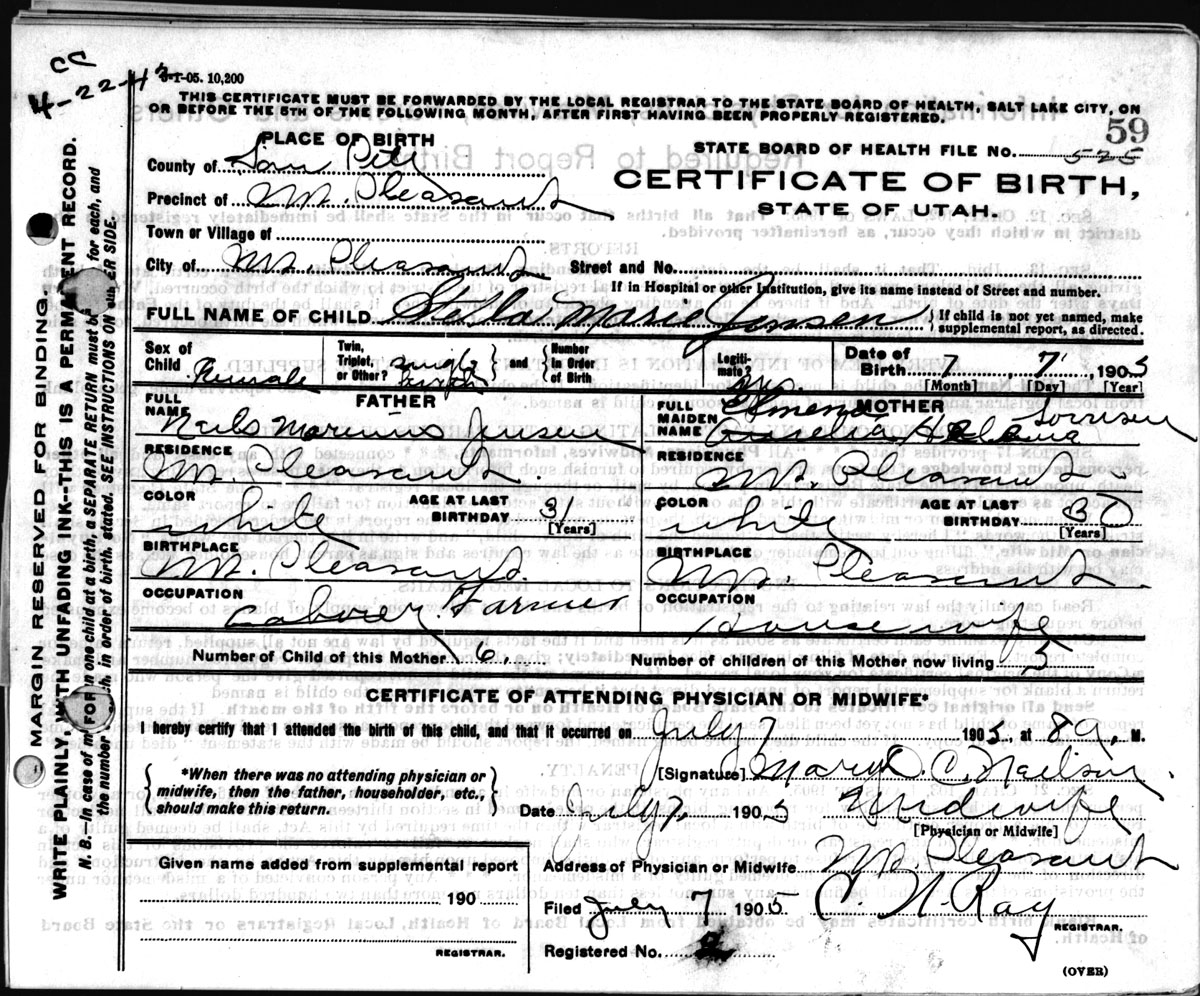 CC
4-22-43
S-T-05. 10,200
THIS CERTIFICATE MUST BE FORWARDED BY THE LOCAL REGISTRAR TO THE STATE BOARD OF HEALTH, SALT LAKE CITY, ON
OR BEFORE THE 5TH OF THE FOLLOWING MONTH, AFTER FIRST HAVING BEEN PROPERLY REGISTERED.
59
PLACE OF BIRTH
STATE BOARD OF HEALTH FILE No. 525
County of San Pete
CERTIFICATE OF BIRTH,
Precinct of Mt. Pleasant
STATE OF UTAH.
Town or Village of
City of Mt Pleasant Street and No.
If in Hospital or other Institution, give its name instead of Street and number.
FULL NAME OF CHILD Stella Marie Jensen { If child is not yet named, make supplemental report, as directed.
Sex of Child Female Twin, Triplet, or Other? single birth } and { Number in Order of Birth Legiti-mate? yes Date of Birth 7 7 1905
[Month] [Day] [Year]
FATHER
FULL NAME Neils Marinus Jensen
MOTHER
FULL MAIDEN NAME Elmena Sorensen
RESIDENCE Mt. Pleasant.
RESIDENCE Mt. Pleasant
COLOR white AGE AT LAST BIRTHDAY 31 [Years]
COLOR white AGE AT LAST BIRTHDAY 30 [Years]
BIRTHPLACE Mt. Pleasant
BIRTHPLACE Mt. Pleasant
OCCUPATION Laborer. Farmer
OCCUPATION Housewife
Number of Child of this Mother 6 Number of children of this Mother now living 5
CERTIFICATE OF ATTENDING PHYSICIAN OR MIDWIFE*
I hereby certify that I attended the birth of this child, and that it occurred on July 7 1905, at 8 a, M.
{ *When there was no attending physician or midwife, then the father, householder, etc., should make this return. }
[Signature] Mary D. C. Neilson.
Date July 7, 1905 Midwife
[Physician or Midwife]
Given name added from supplemental report
190
REGISTRAR.
Address of Physician or Midwife Mt. Pleasant
Filed July 7 1905 C. N. Ray
REGISTRAR.
Registered No. 2
(OVER)
MARGIN RESERVED FOR BINDING.
WRITE PLAINLY, WITH UNFADING INK--THIS IS A PERMANENT RECORD.
N. B.--In case of more than one child at a birth, a SEPARATE RETURN must be made for each, and
the number of each, in order of birth, stated. SEE INSTRUCTIONS ON OTHER SIDE.